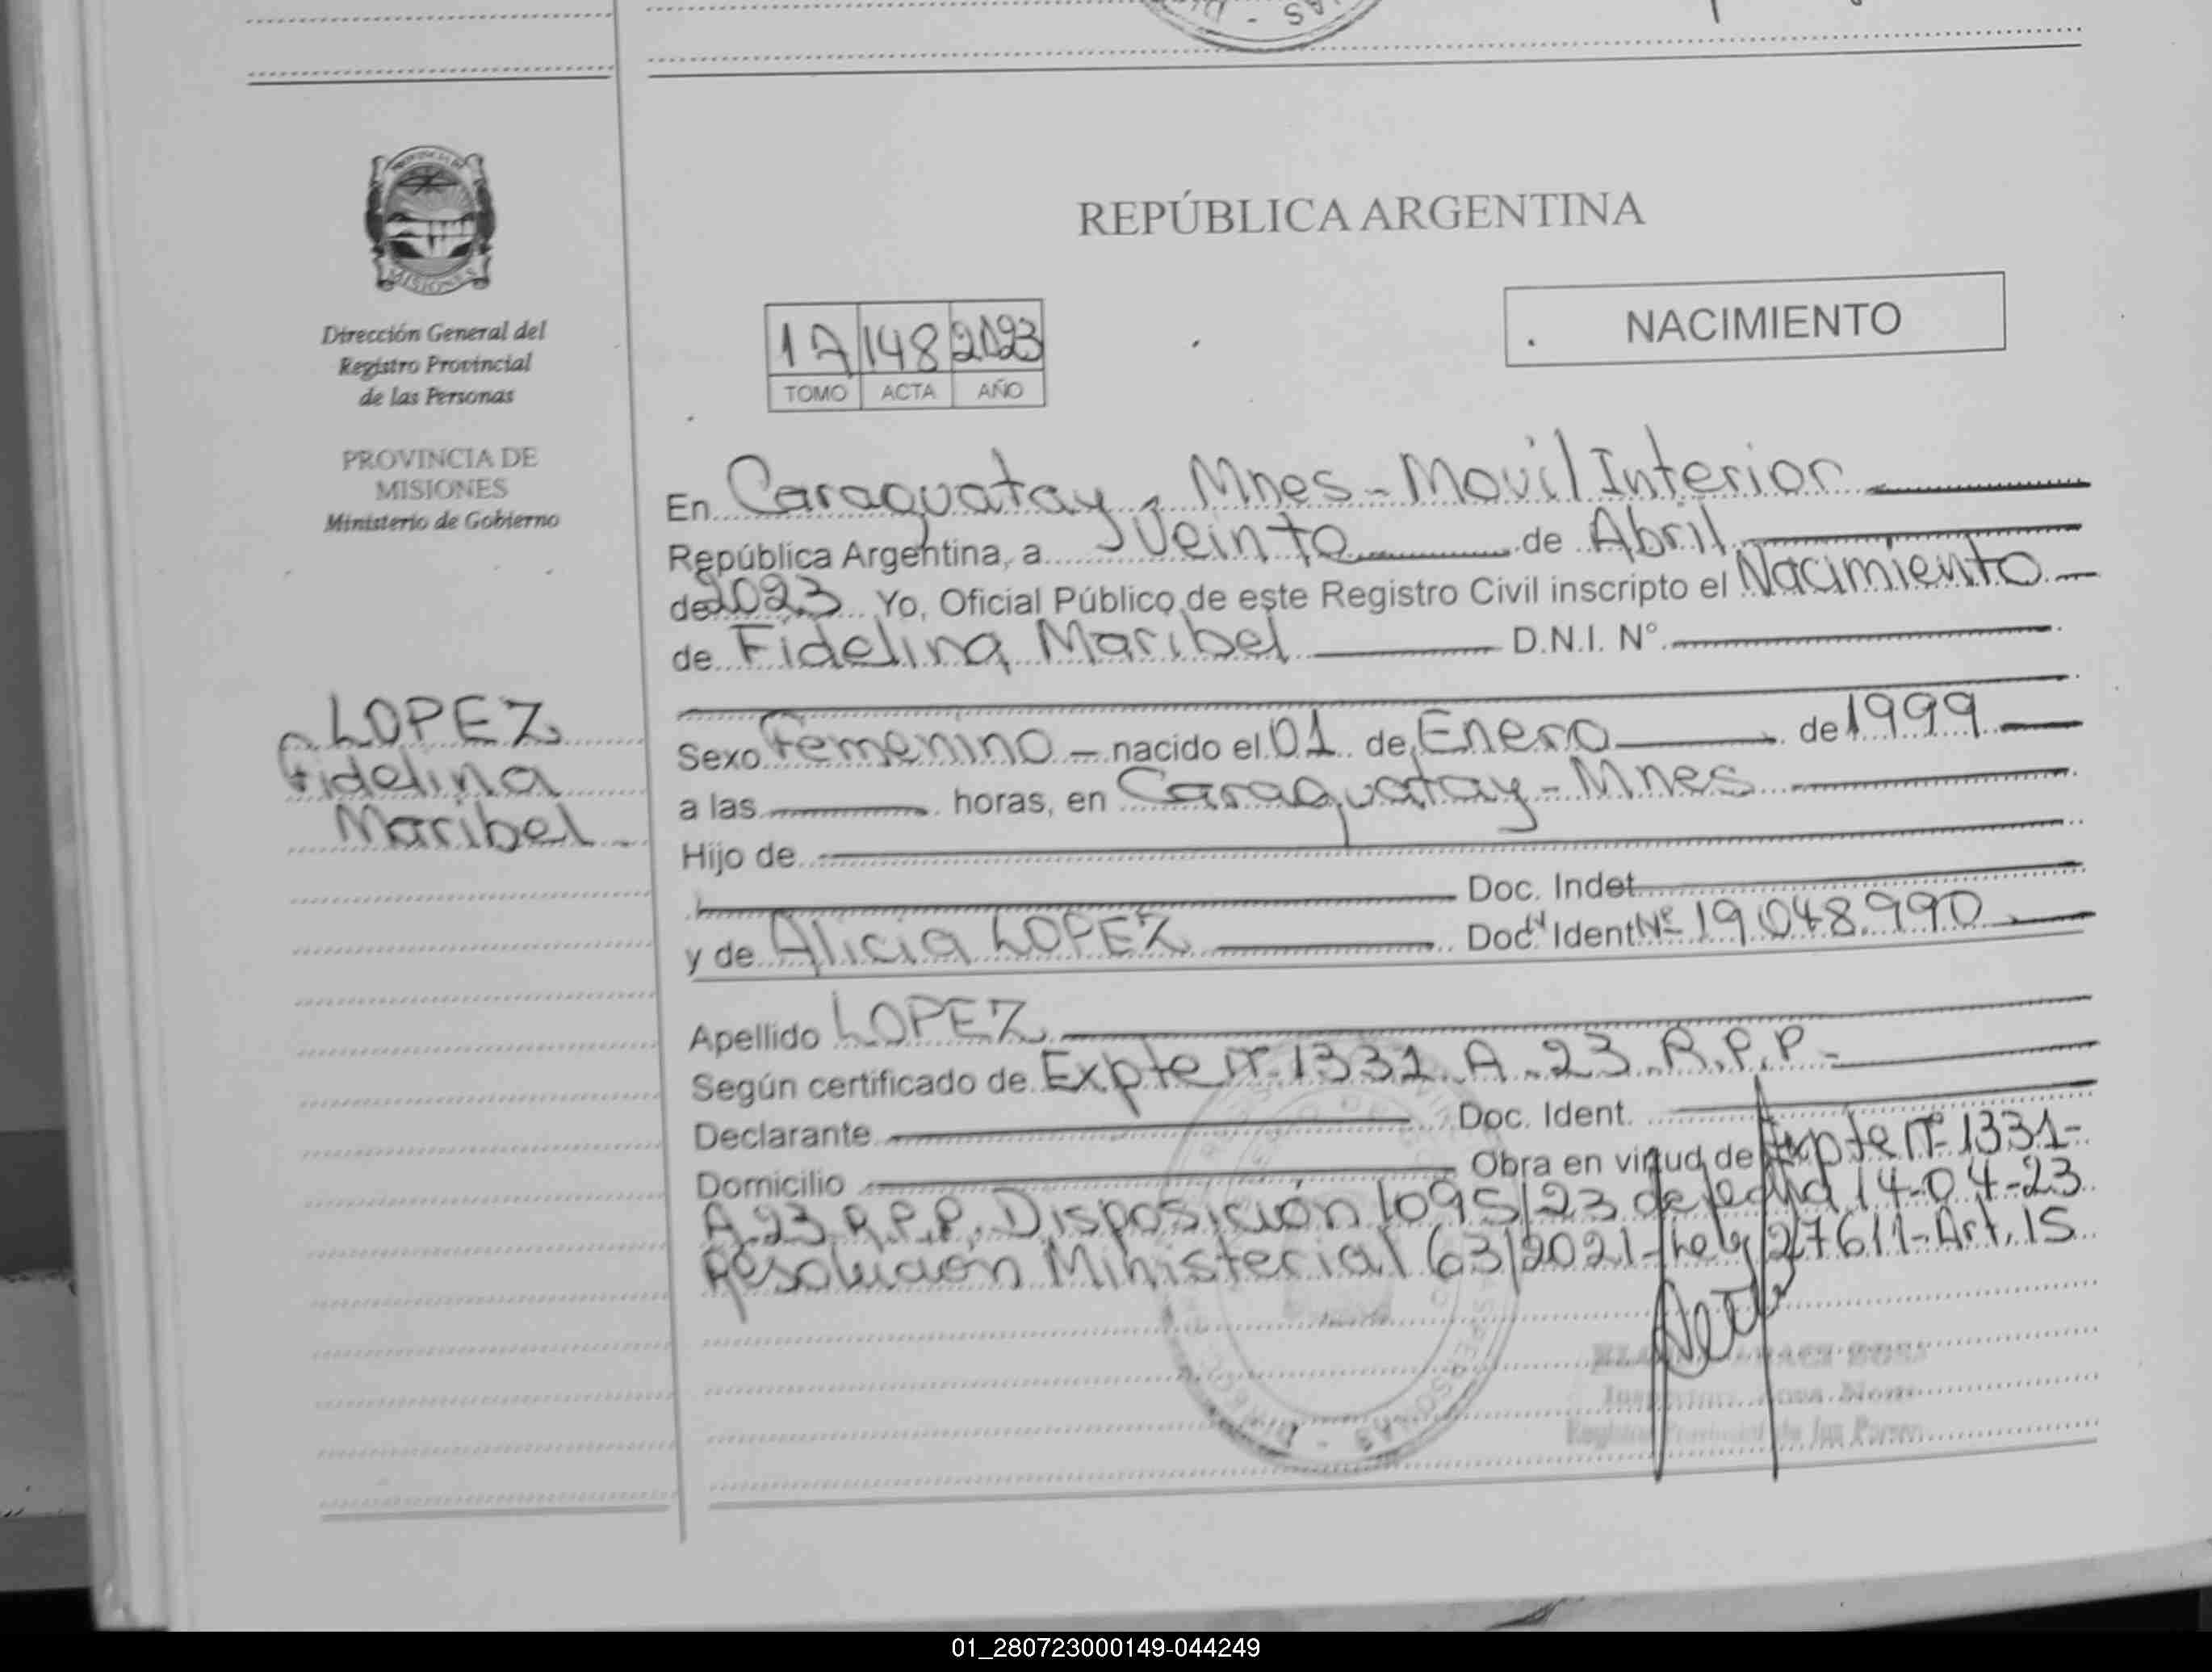 REPÚBLICA ARGENTINA
PROVINCIA DE
MISIONES
Dirección General del
Registro Provincial
de las Personas
PROVINCIA DE
MISIONES
Ministerio de Gobierno
LOPEZ
Fidelina
Maribel
1A 148 2023
TOMO ACTA AÑO
NACIMIENTO
En Caraguatay - Mnes - Movil Interior
República Argentina, a Veinte de Abril
de 2023 Yo, Oficial Público de este Registro Civil inscripto el Nacimiento
de Fidelina Maribel D.N.I. N°
Sexo Femenino - nacido el 01 de Enero de 1999
a las horas, en Caraguatay - Mnes
Hijo de
Doc. Indet.
y de Alicia LOPEZ Doc. Ident Nº 19.048.990
Apellido LOPEZ
Según certificado de Expte nº 1331. A. 23 R.P.P.-
Declarante Doc. Ident.
Domicilio Obra en virtud de Expte nº 1331-
A.23 R.P.P. Disposición 1095/23 de fecha 14-04-23
Resolución Ministerial 63/2021-Ley 27611-Art. 15
01_280723000149-044249